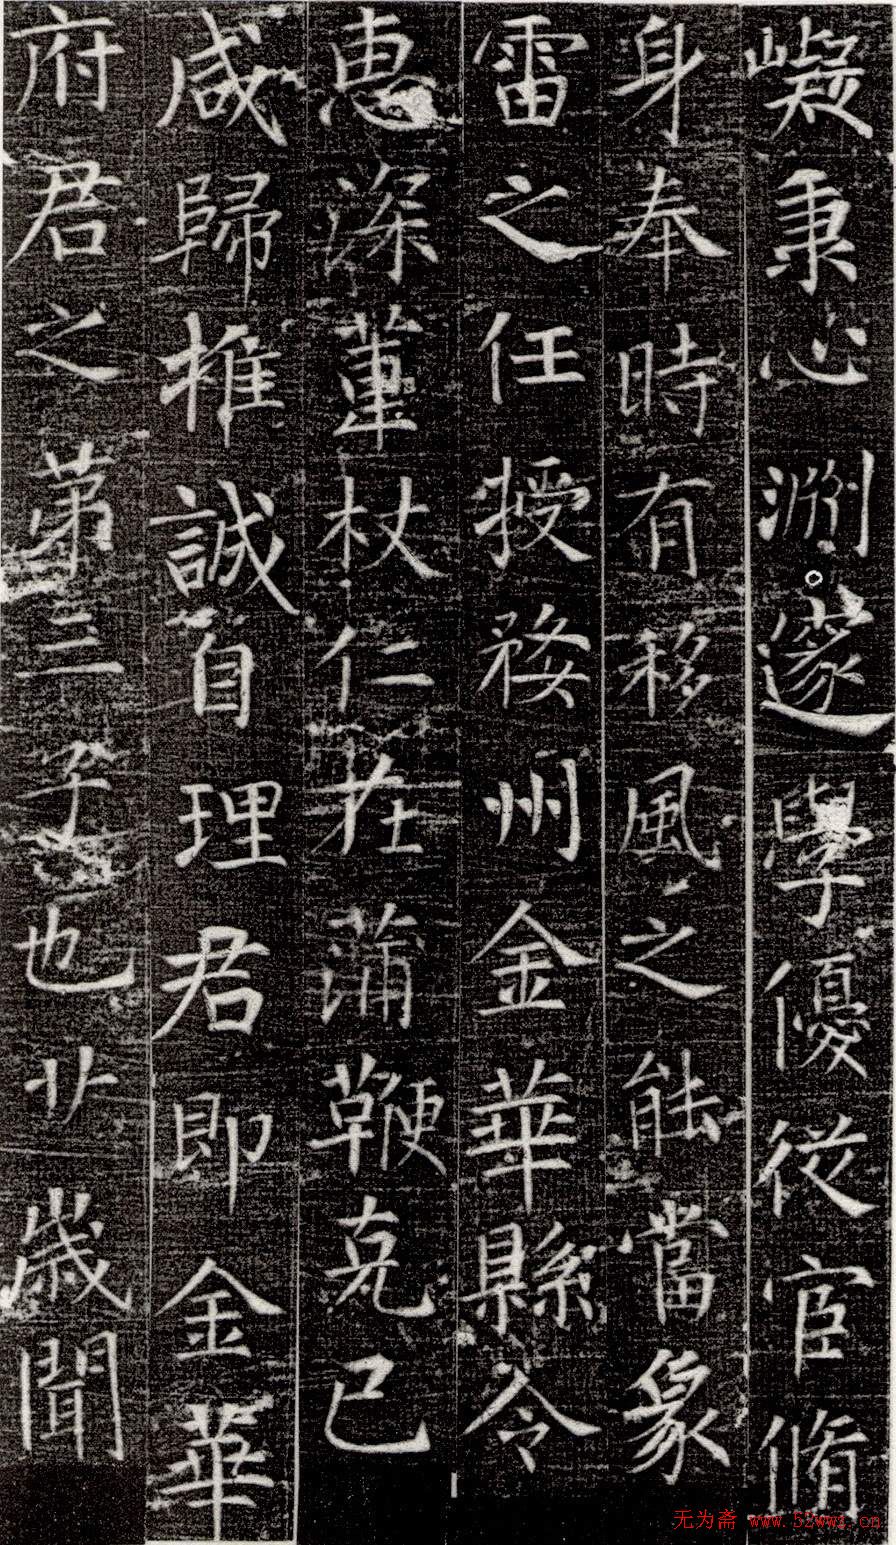 嶷秉心淵邃學優從宦脩
身奉時有移風之能當象
雷之任授婺州金華縣令
惠深葦杖仁在蒲鞭克己
咸歸推誠自理君即金華
府君之苐三子也廿歲聞
无为斋 www.52wwz.cn